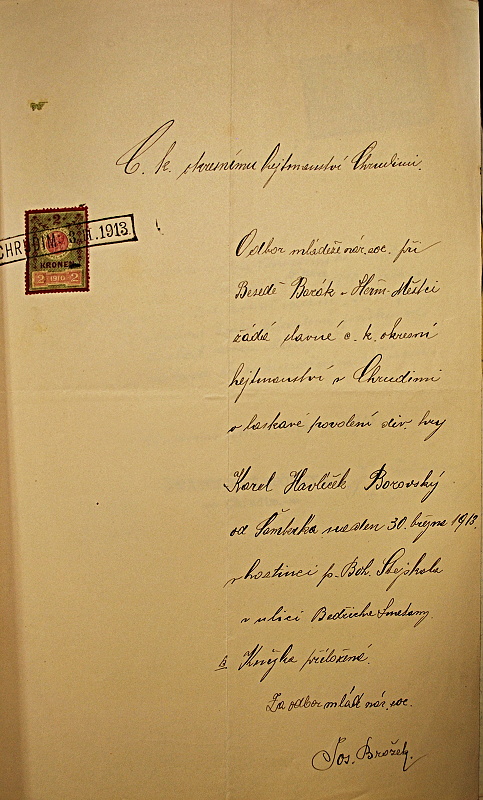 C. k. okresnímu hejtmanství Chrudimi.
2
CHRUDIM 8.II.1913.
KRONEN
2 1910 2
Odbor mládeže nár. soc. při
Besedě Barák v Heřm. Městci
žádá slavné c. k. okresní
hejtmanství v Chrudimi
o laskavé povolení div. hry
Karel Havlíček Borovský
od Šamberka na den 30. března 1913.
v hostinci p. Boh. Stejskala
v ulici Bedřicha Smetany.
Knížka přiložena.
Za odbor mlád. nár. soc.
Jos. Brožek.